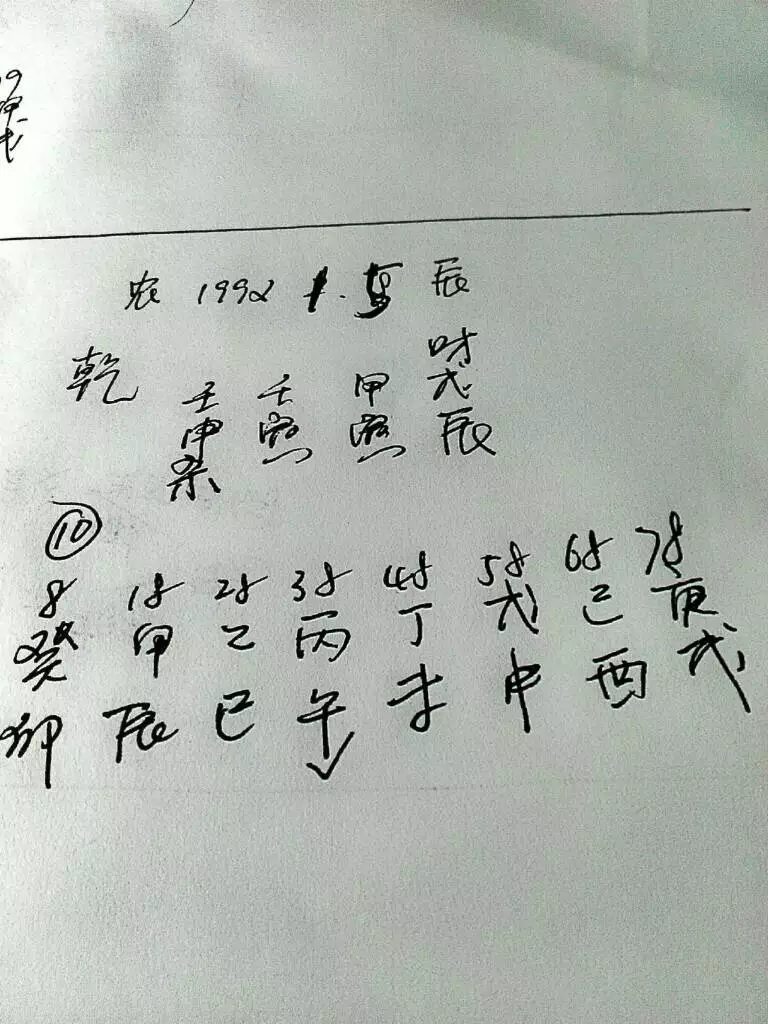 农 1992 1. 辰
财
乾 壬 壬 甲 戊
申 寅 寅 辰
杀
⑩
8 18 28 38 48 58 68 78
癸 甲 乙 丙 丁 戊 己 庚
卯 辰 巳 午 未 申 酉 戌